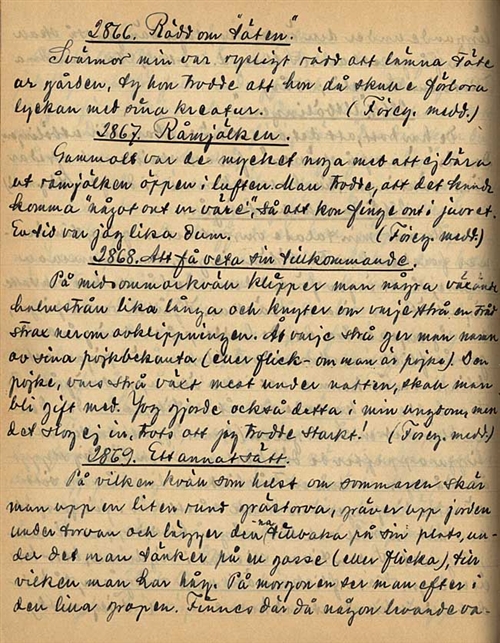 2866. Rädd om "täten."
Svärmor min var rysligt rädd att lämna täte
av gården, ty hon trodde att hon då skulle förlora
lyckan med sina kreatur. (Föreg. medd.)
2867. Råmjölken.
Gammalt var de mycket noga med att ej bära
ut råmjölken öppen i luften. Man trodde, att det kunde
komma "något ont en väre", så att kon finge ont i juvret.
En tid var jag lika dum. (Föreg. medd.)
2868. Att få veta sin tillkommande.
På midsommarkväll klipper man några växande
halmstrån lika långa och knyter om varje strå en tråd
strax nerom avklippningen. Åt varje strå ger man namn
av sina pojkbekanta (eller flick- om man är pojke). Den
pojke, vars strå växt mest under natten, skall man
bli gift med. Jag gjorde också detta i min ungdom, men
det slog ej in, trots att jag trodde starkt! (Föreg. medd.)
2869. Ett annat sätt.
På vilken kväll som helst om sommaren skär
man upp en liten rund grästorva, gräver upp jorden
under torvan och lägger denna tillbaka på sin plats, un-
der det man tänker på en gosse (eller flicka), till
vilken man har håg. På morgonen ser man efter i
den lilla gropen. Finnes där då någon levande va-